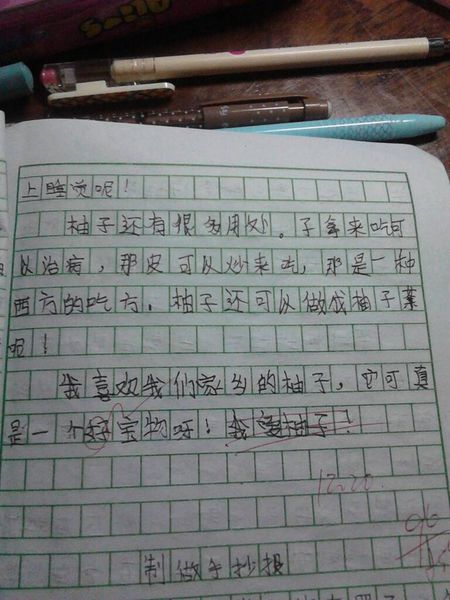 上睡觉呢！
柚子还有很多用处。子拿来吃可
以治病，那皮可以炒来吃，那是一种
西方的吃方，柚子还可以做成柚子茶
呢！
我喜欢我们家乡的柚子，它可真
是一个好宝物呀！我爱柚子！
12.20
制做手抄报